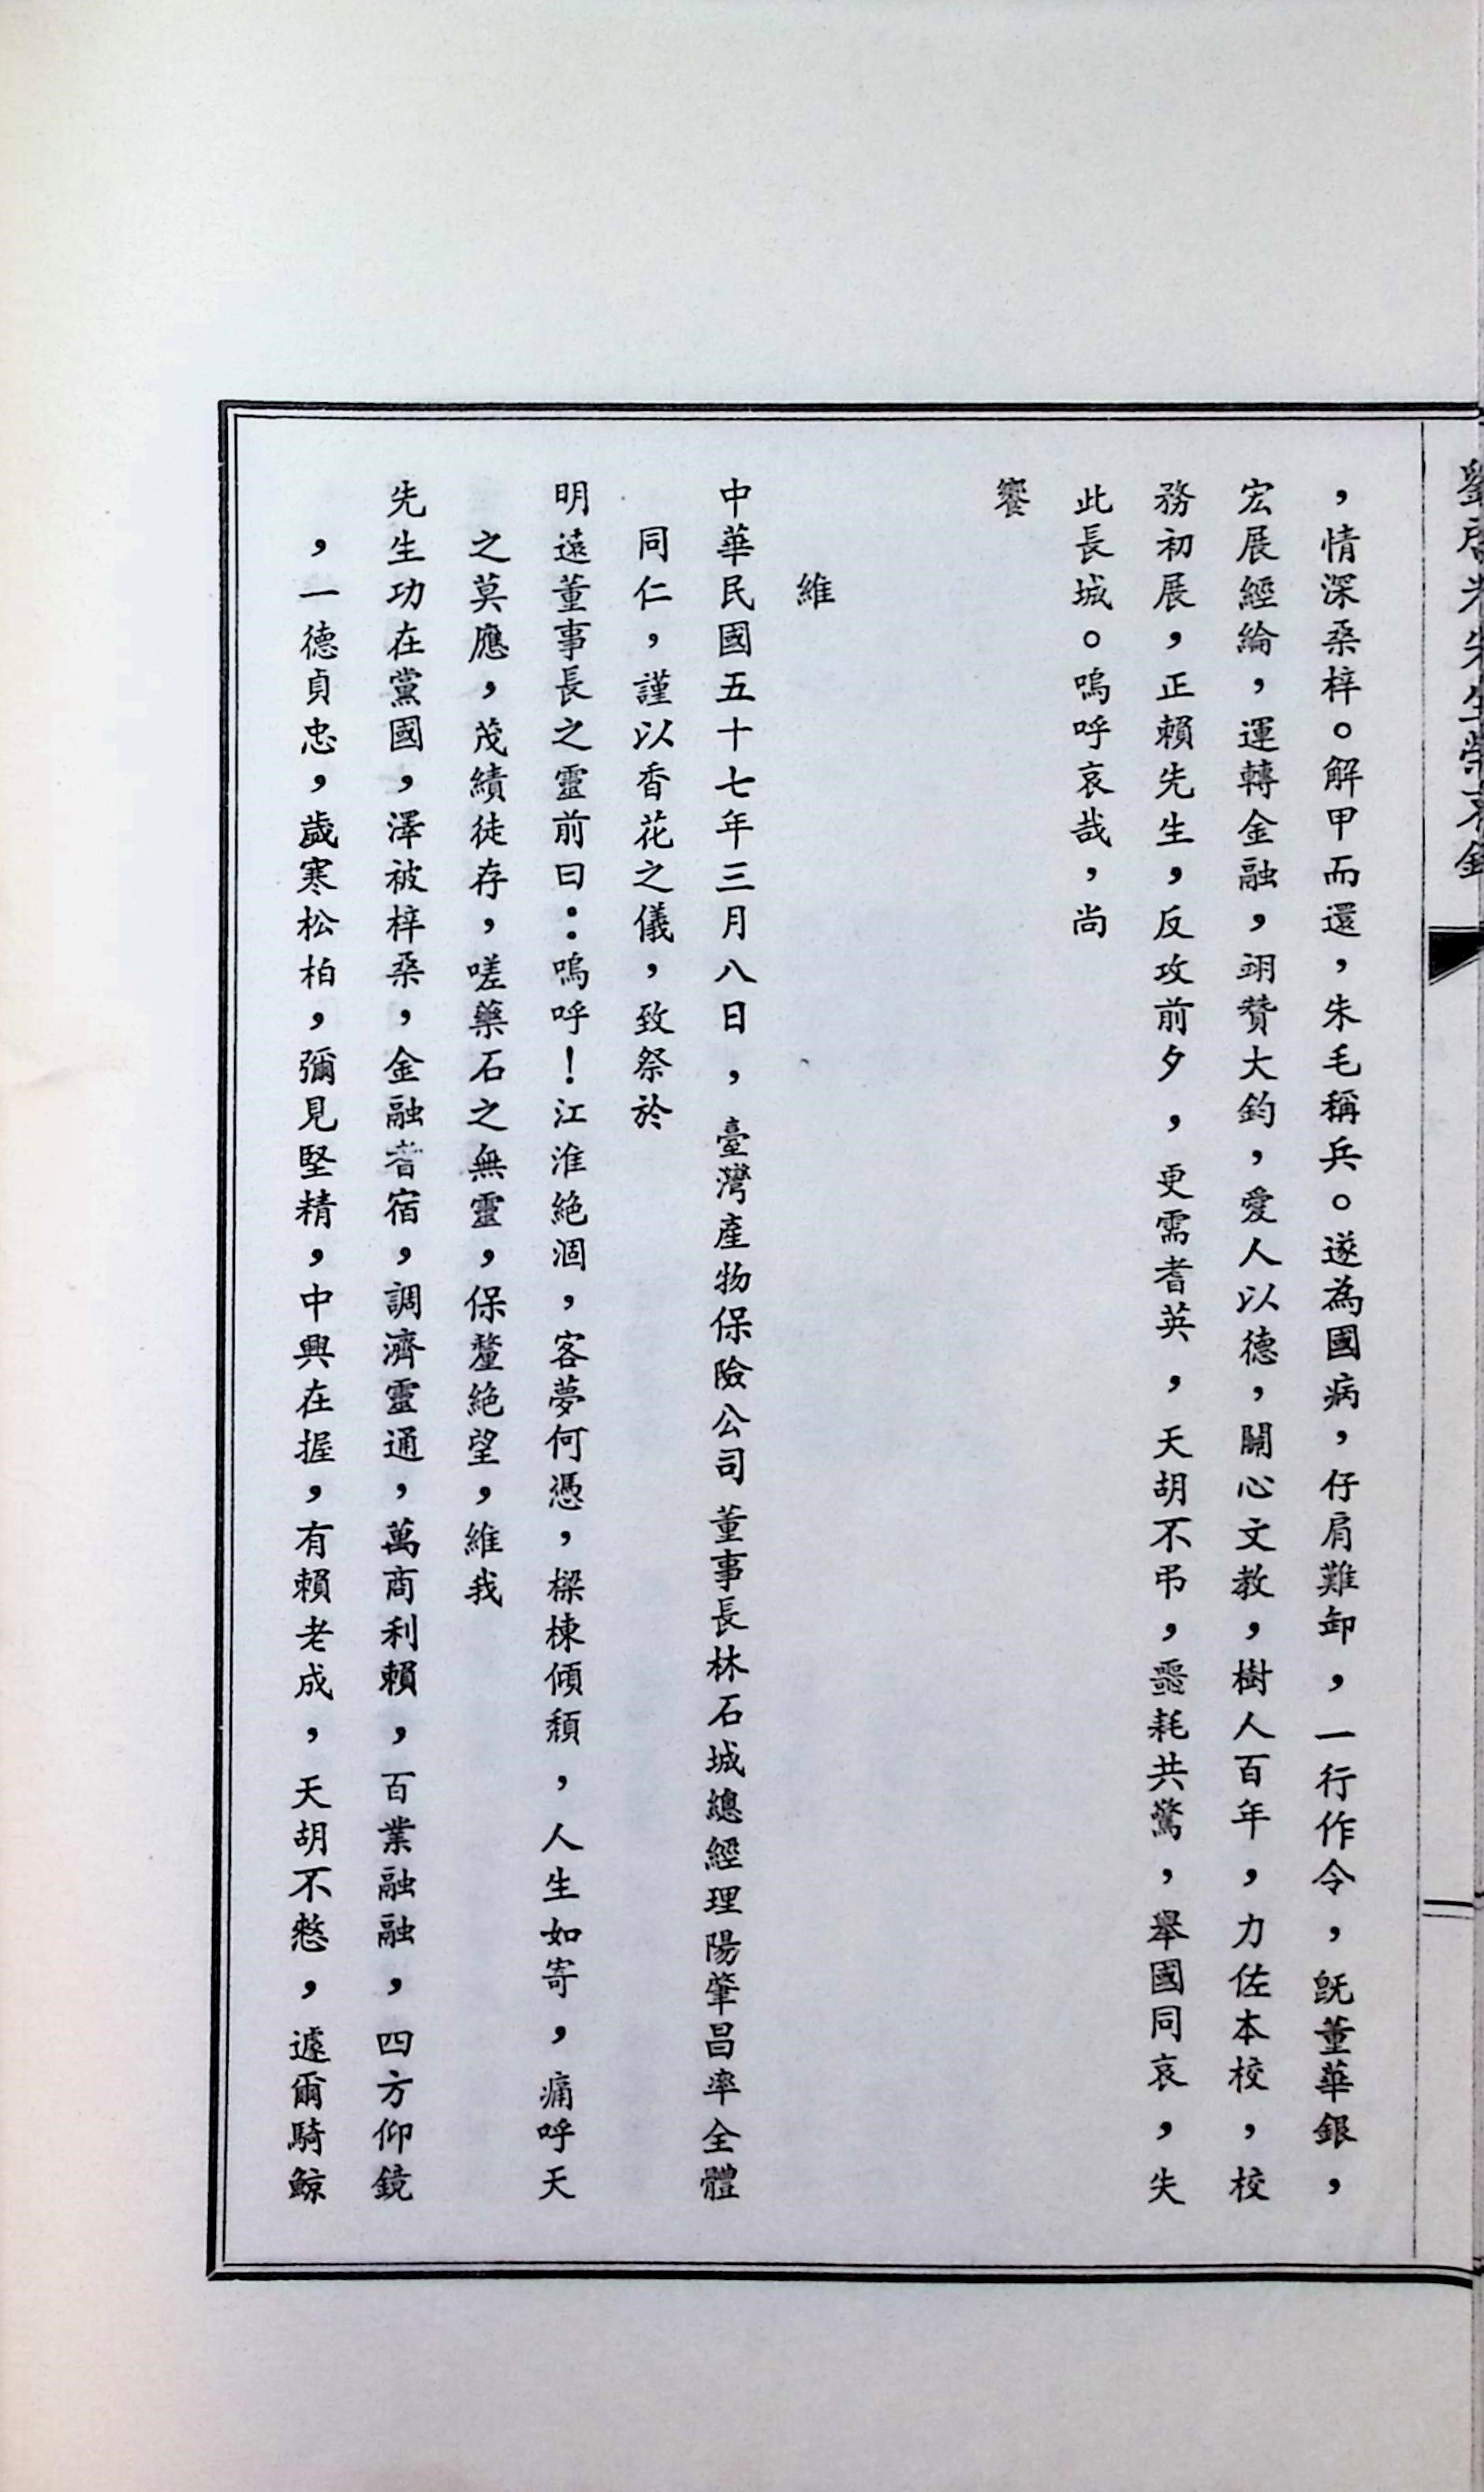 ，情深桑梓。解甲而還，朱毛稱兵。遂為國病，仔肩難卸，一行作令，既董華銀，
宏展經綸，運轉金融，翊贊大鈞，愛人以德，關心文教，樹人百年，力佐本校，校
務初展，正賴先生，反攻前夕，更需耆英，天胡不弔，噩耗共驚，舉國同哀，失
此長城。嗚呼哀哉，尚
饗
維
中華民國五十七年三月八日，臺灣產物保險公司董事長林石城總經理陽肇昌率全體
同仁，謹以香花之儀，致祭於
明遠董事長之靈前曰：嗚呼！江淮絕涸，客夢何憑，樑棟傾頹，人生如寄，痛呼天
之莫應，茂績徒存，嗟藥石之無靈，保釐絕望，維我
先生功在黨國，澤被梓桑，金融耆宿，調濟靈通，萬商利賴，百業融融，四方仰鏡
，一德貞忠，歲寒松柏，彌見堅精，中興在握，有賴老成，天胡不憗，遽爾騎鯨